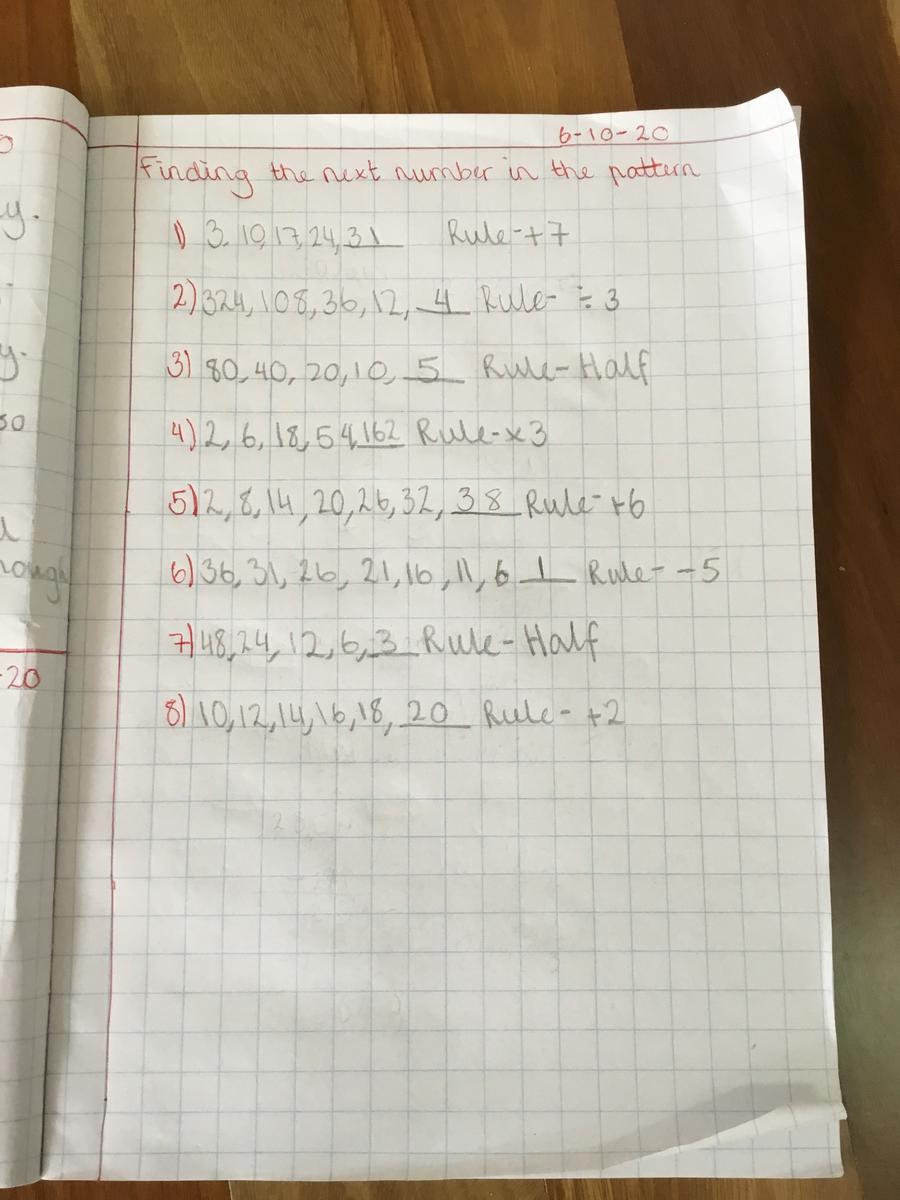 6-10-20
Finding the next number in the pattern
1) 3, 10, 17, 24, 31 Rule-+7
2) 324, 108, 36, 12, 4 Rule- ÷ 3
3) 80, 40, 20, 10, 5 Rule-Half
4) 2, 6, 18, 54, 162 Rule-x3
5) 2, 8, 14, 20, 26, 32, 38 Rule-+6
6) 36, 31, 26, 21, 16, 11, 6 1 Rule- -5
7) 48, 24, 12, 6, 3 Rule-Half
8) 10, 12, 14, 16, 18, 20 Rule- +2
y.
y.
so
-20